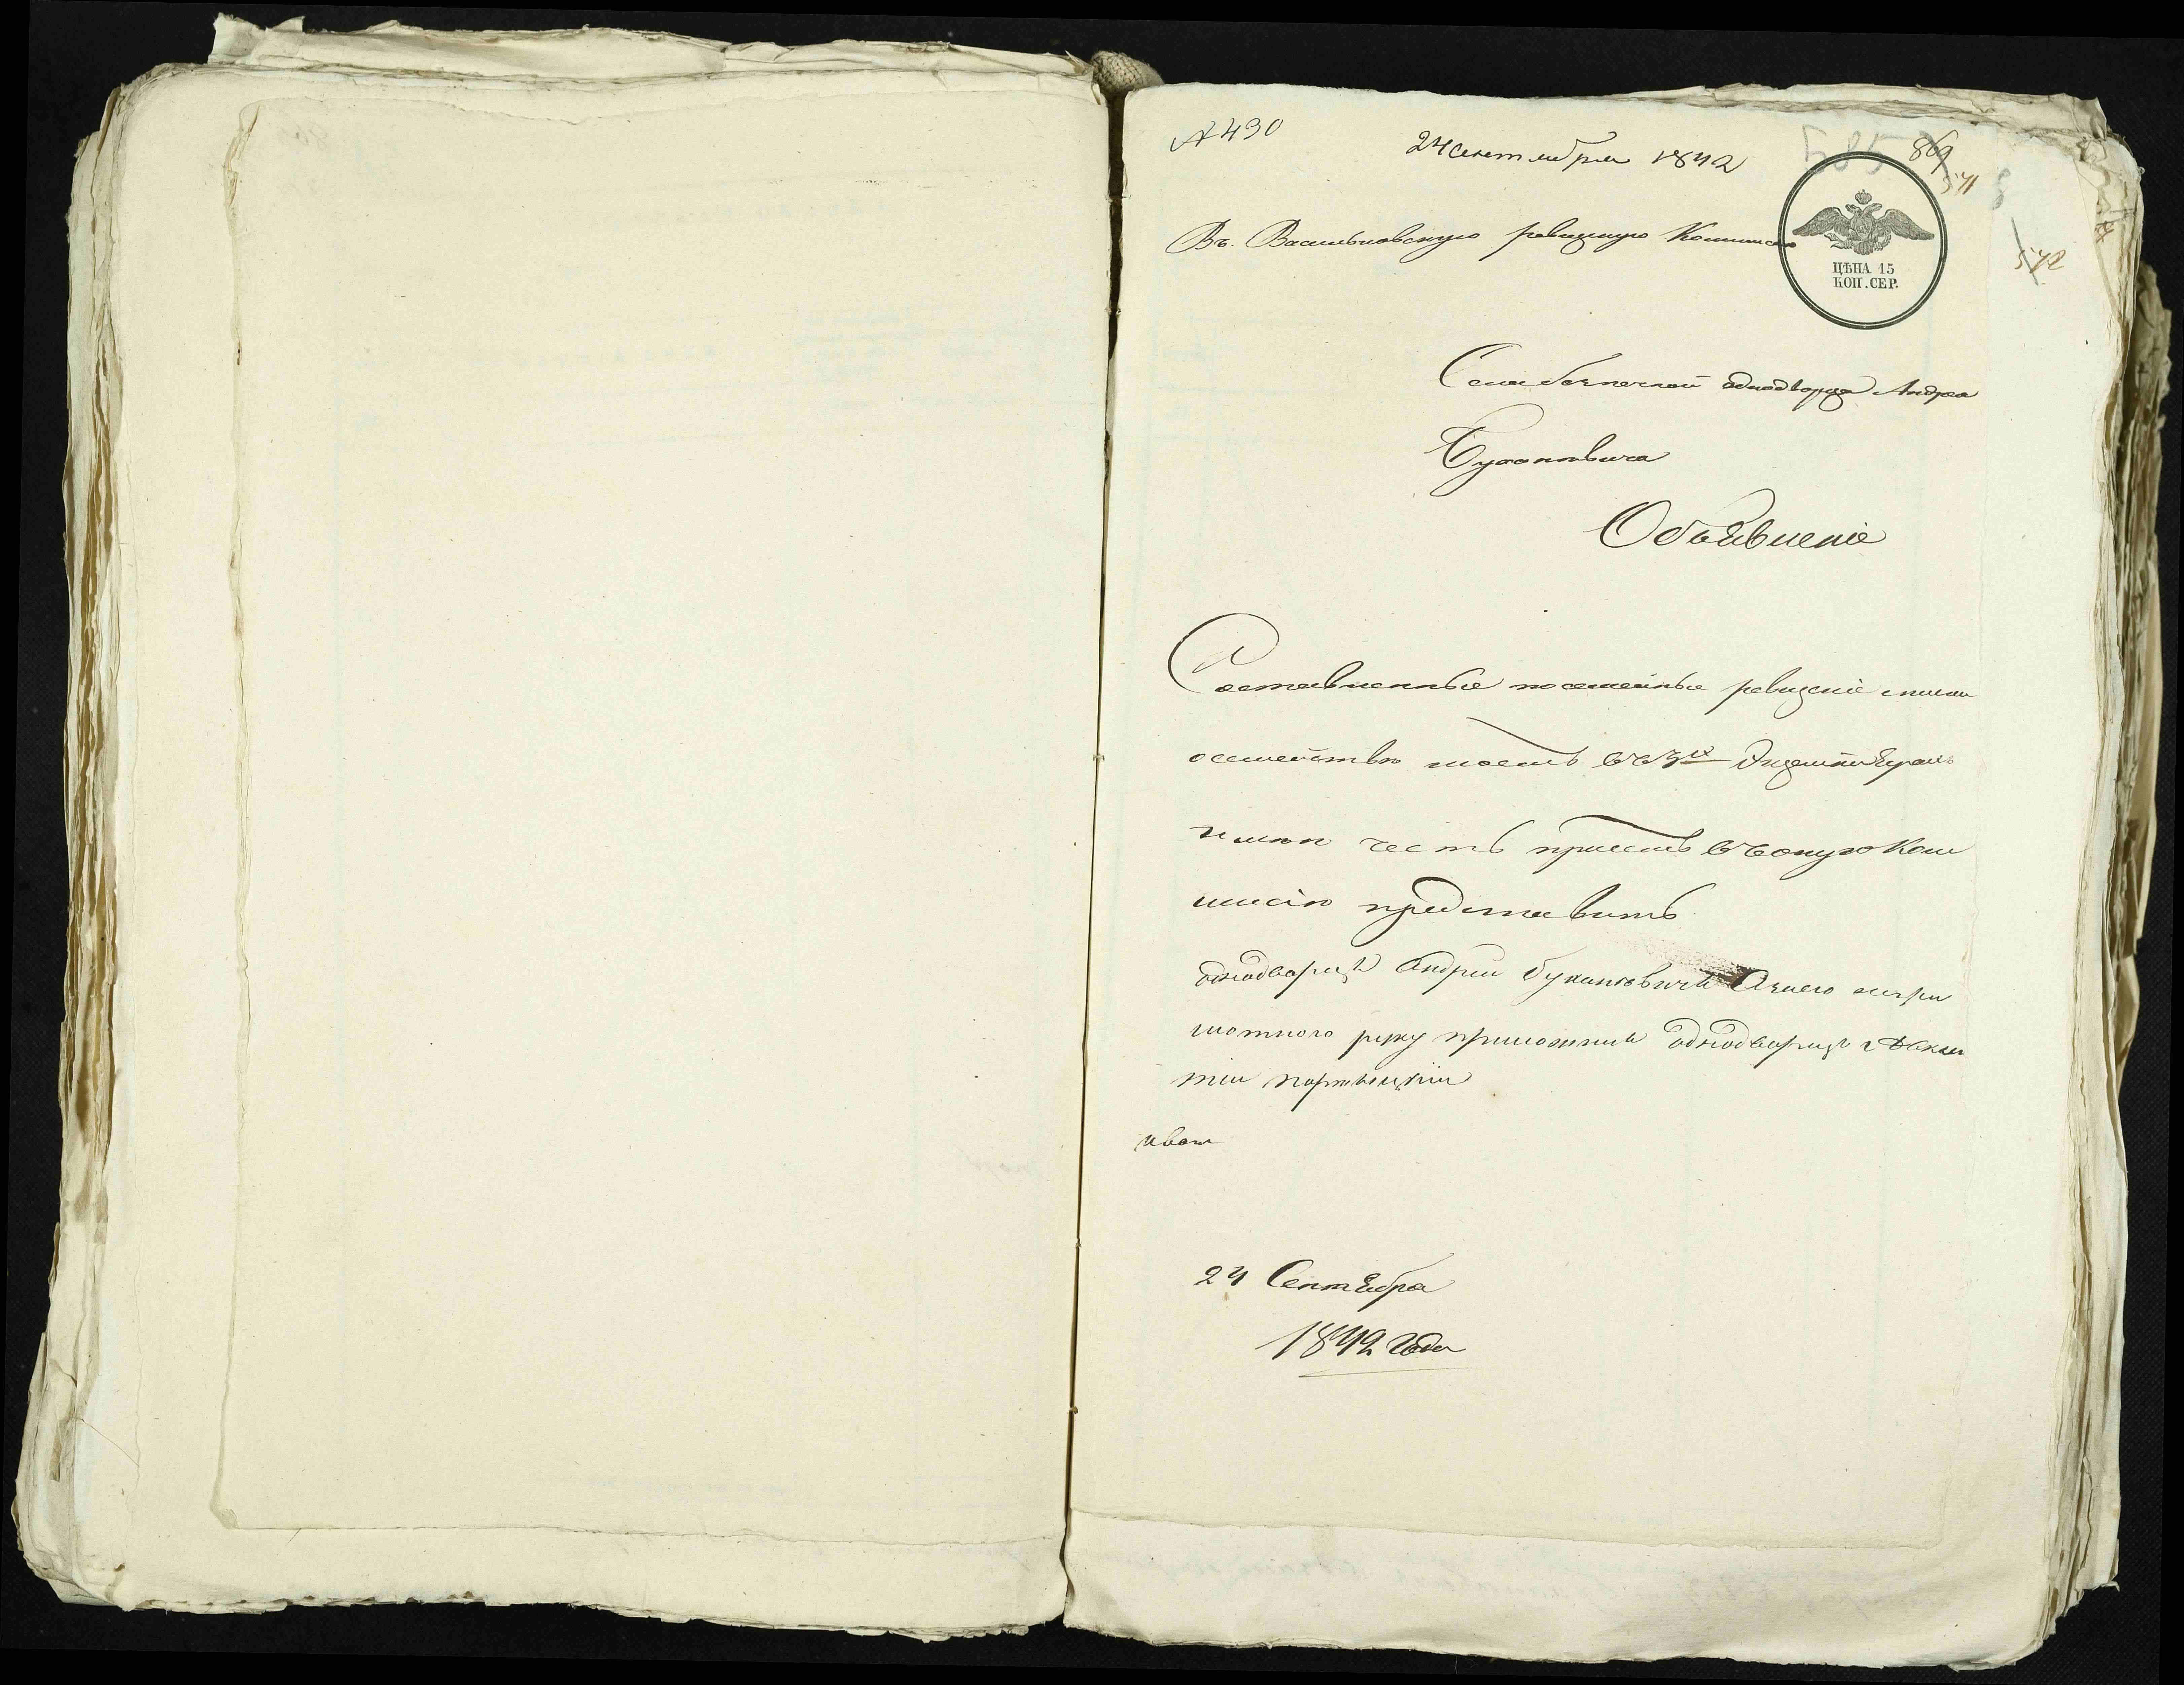 № 430
24 сентября 1842
585
869
571
572
Въ Васильковскую ревизкую Комисию
ЦѢНА 15
КОП. СЕР.
Села однодворца Андрея
Букатовича
Объявленіе
Составленные посемейные ревизскіе
осемействѣ моемъ въ 3х Экземплярахъ
имѣю честь присемъ въ оную Ком
мисію представить
однодворецъ Андрей Букатовичъ Аз него негра
мотного руку приложилъ однодворецъ
24 Сентября
1842 Года